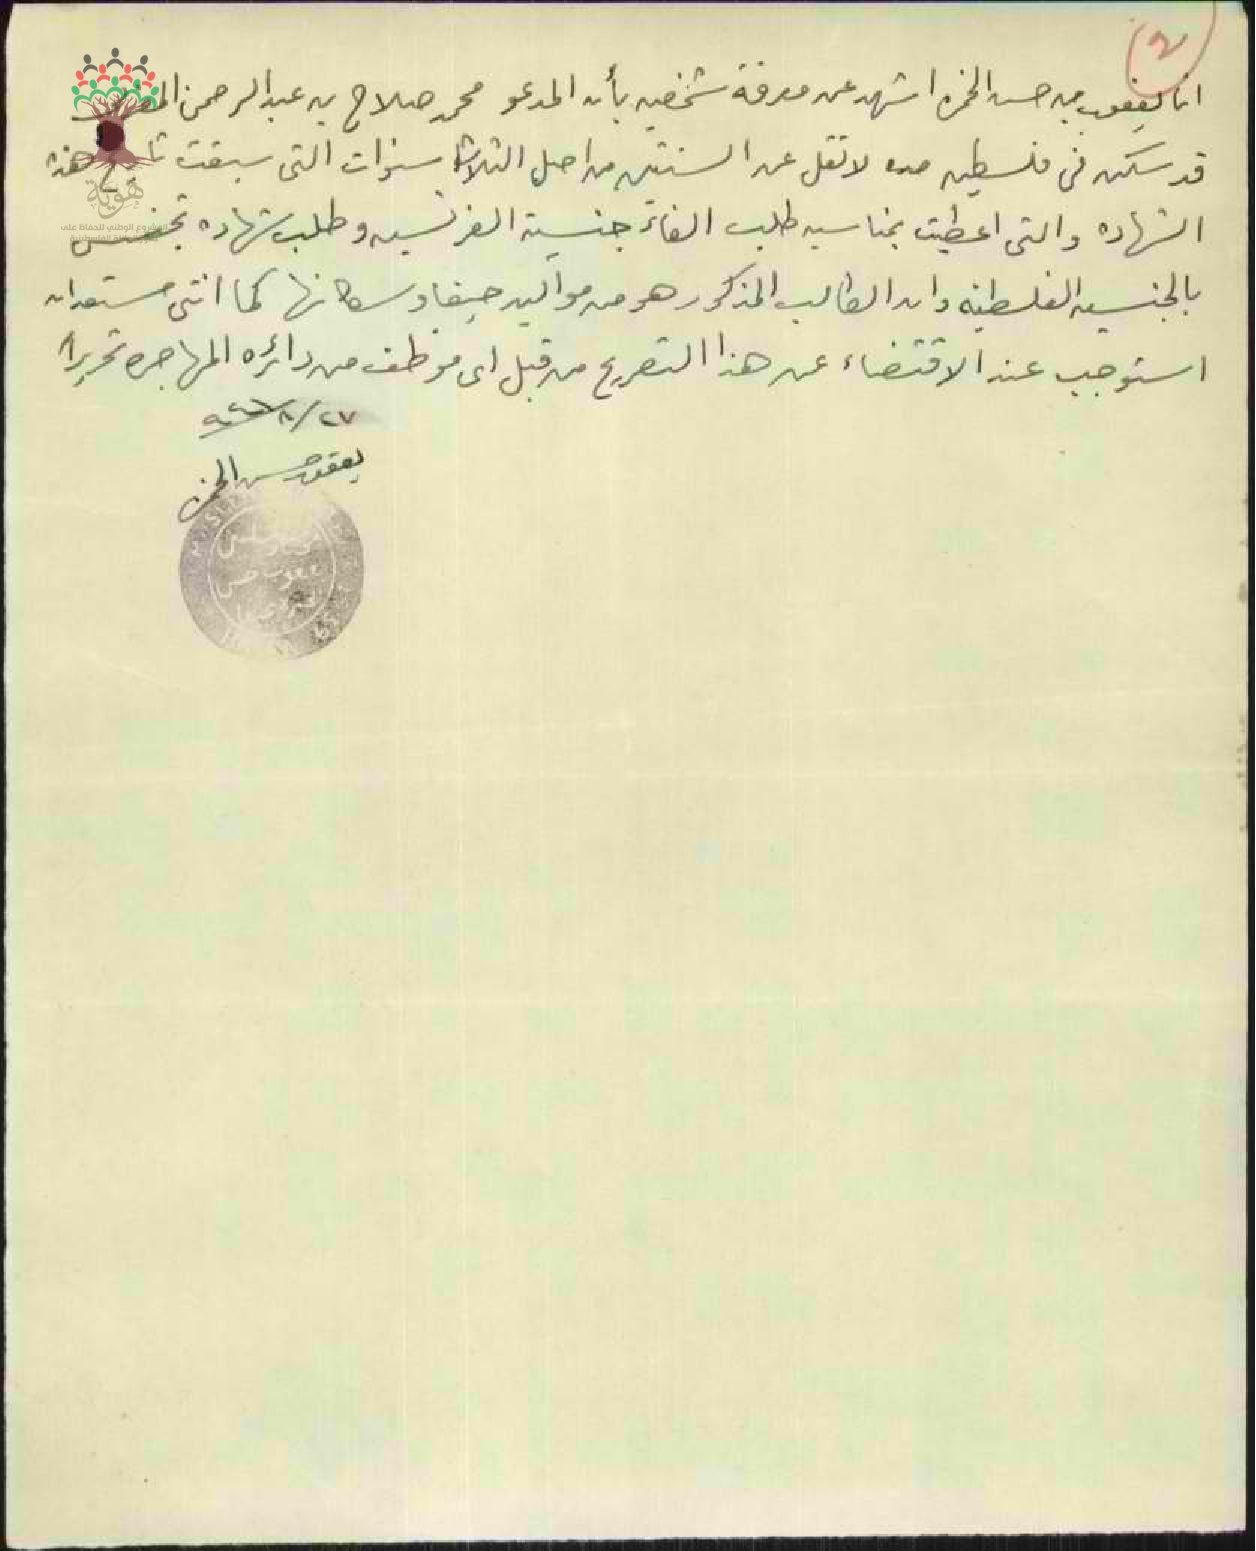 ٢
انا يعقوب بن حسن الخمره اشهد عن معرفة شخصيه بأن المدعو محمد صلاح بن عبد الرحمن
قد سكن في فلسطين مده لا تقل عن السنتين من اصل الثلاث سنوات التي سبقت تاريخ هذه
الشهاده والتي اعطيت بمناسبه طلب الغائه جنسيته الفرنسيه وطلب شهاده تجنس
بالجنسيه الفلسطينيه وان الطالب المذكور هو من مواليد حيفا وسكانها كما انني مستعد ان
استوجب عند الاقتضاء عن هذا التصريح من قبل اى موظف من دائره المهاجره تحريراً
٢٧/٨/
يعقوب حسن
هوية
المشروع الوطني للحفاظ على
يعقوب حسن